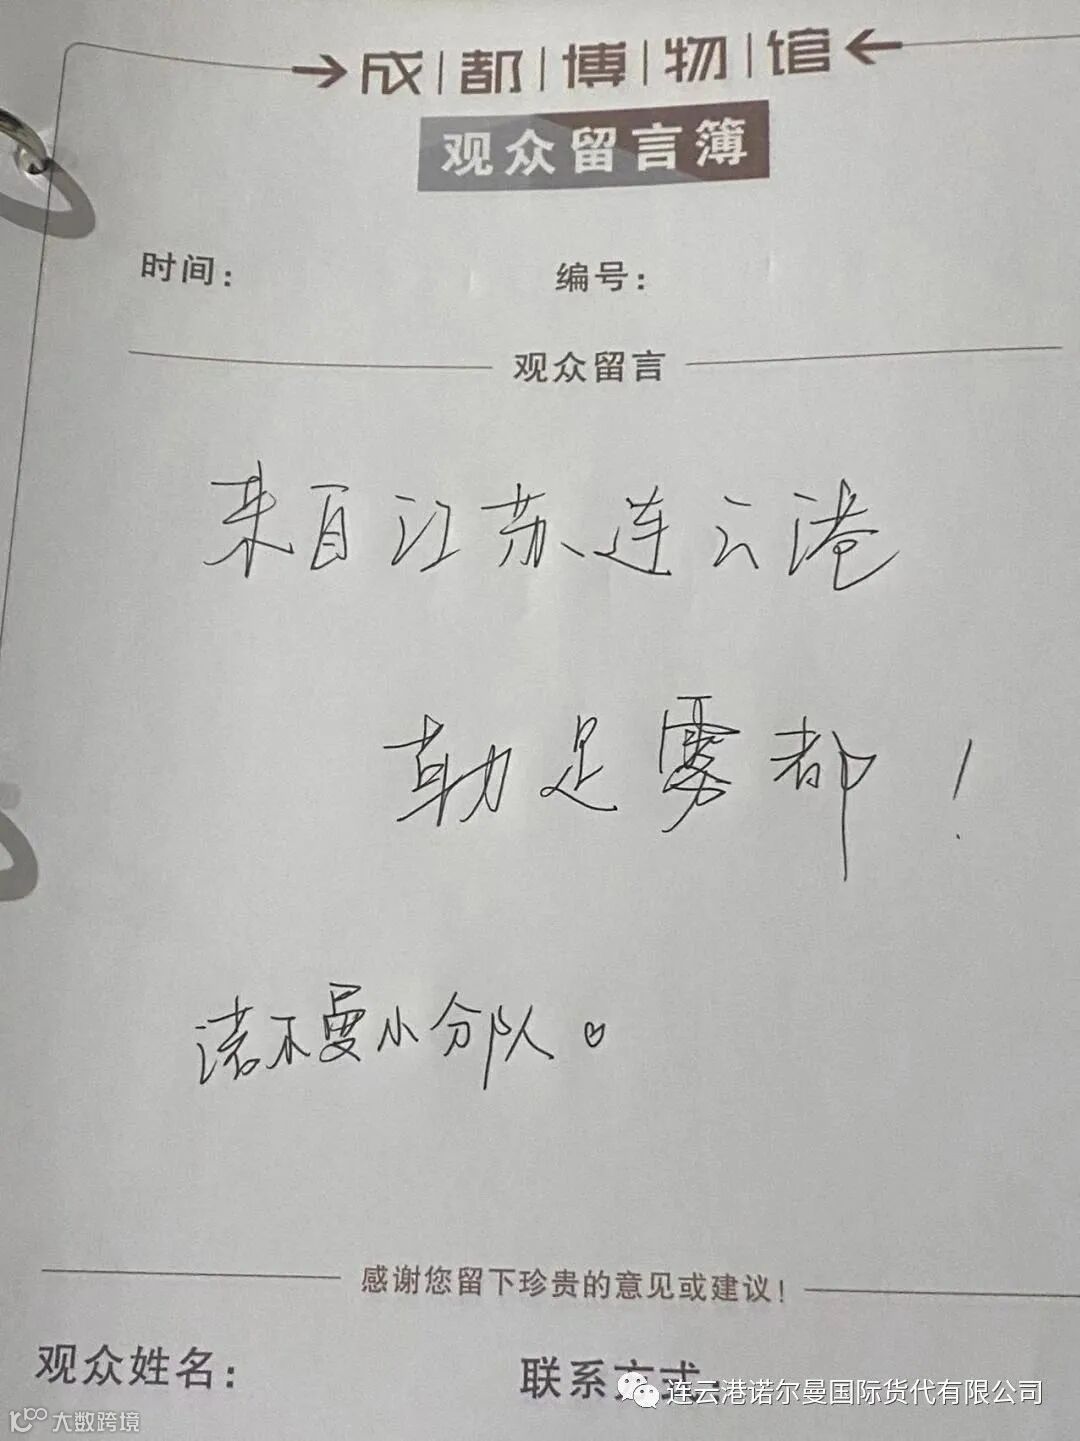 成都博物馆
观众留言簿
时间： 编号：
观众留言
来自江苏连云港
勒是雾都！
诺尔曼小分队。♡
感谢您留下珍贵的意见或建议！
观众姓名： 联系方式：
连云港诺尔曼国际货代有限公司
大数跨境